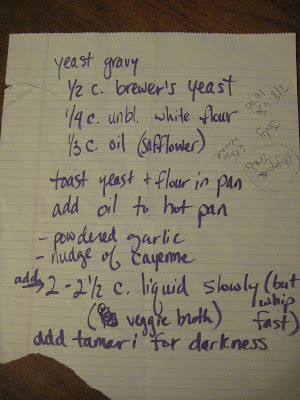 yeast gravy
1/2 c. brewer's yeast
1/4 c. unbl. white flour
1/3 c. oil (safflower)
toast yeast + flour in pan
add oil to hot pan
- powdered garlic
- nudge of cayenne
add → 2 - 2 1/2 c. liquid slowly (but whip fast)
(veggie broth)
add tamari for darkness